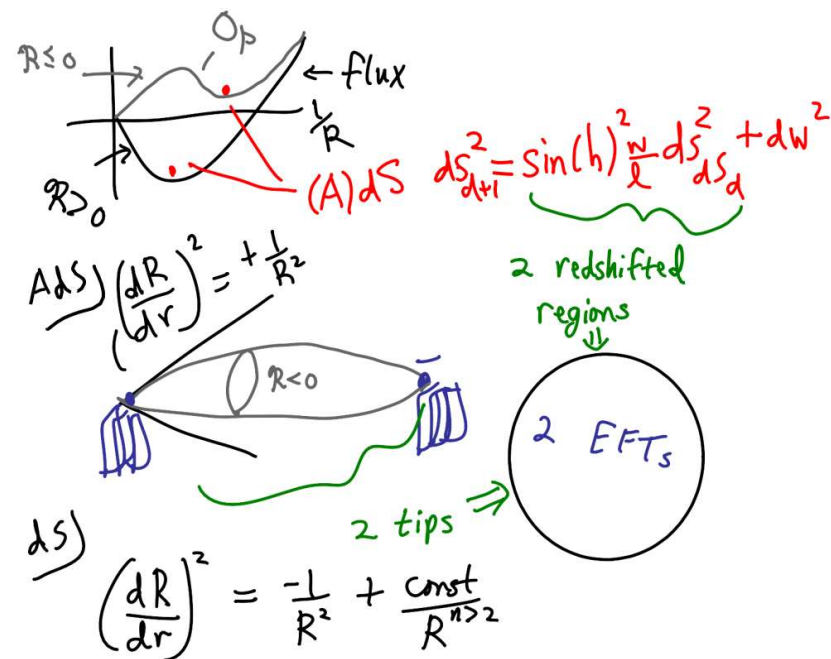 R≤0
Op
← flux
1/R
R>0
(A)dS
ds²_{d+1} = sin(h)² w/l ds²_{dS_d} + dw²
2 redshifted
regions
AdS) (dR/dr)² = + 1/R²
R<0
2 EFTs
2 tips
dS)
(dR/dr)² = -1/R² + const/R^{n>2}